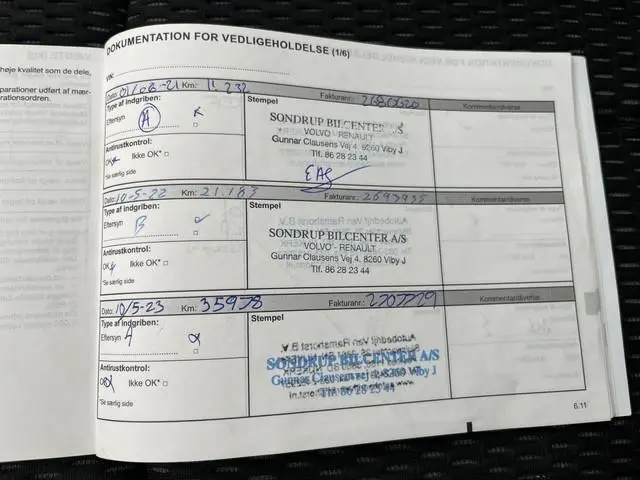 høje kvalitet som de dele,
parationer udført af mær-
rationsordren.
DOKUMENTATION FOR VEDLIGEHOLDELSE (1/6)
VIN:
Dato: 01/08-21 Km: 11.232 Fakturanr.: Kommentar/diverse
Type af indgriben: Stempel
Eftersyn A
SONDRUP BILCENTER A/S
VOLVO - RENAULT
Gunnar Clausens Vej 4, 8260 Viby J
Tlf. 86 28 23 44
Antirustkontrol:
OK Ikke OK*
*Se særlig side
Dato: 10-5-22 Km: 21.183 Fakturanr.: 2693935 Kommentar/diverse
Type af indgriben: Stempel
Eftersyn B
SONDRUP BILCENTER A/S
VOLVO - RENAULT
Gunnar Clausens Vej 4, 8260 Viby J
Tlf. 86 28 23 44
Antirustkontrol:
OK Ikke OK*
*Se særlig side
Dato: 10/5-23 Km: 35978 Fakturanr.: 2707729 Kommentar/diverse
Type af indgriben: Stempel
Eftersyn A
SONDRUP BILCENTER A/S
Gunnar Clausens vej 4, 8260 Viby J
Tlf. 86 28 23 44
Antirustkontrol:
OK Ikke OK*
*Se særlig side
6.11